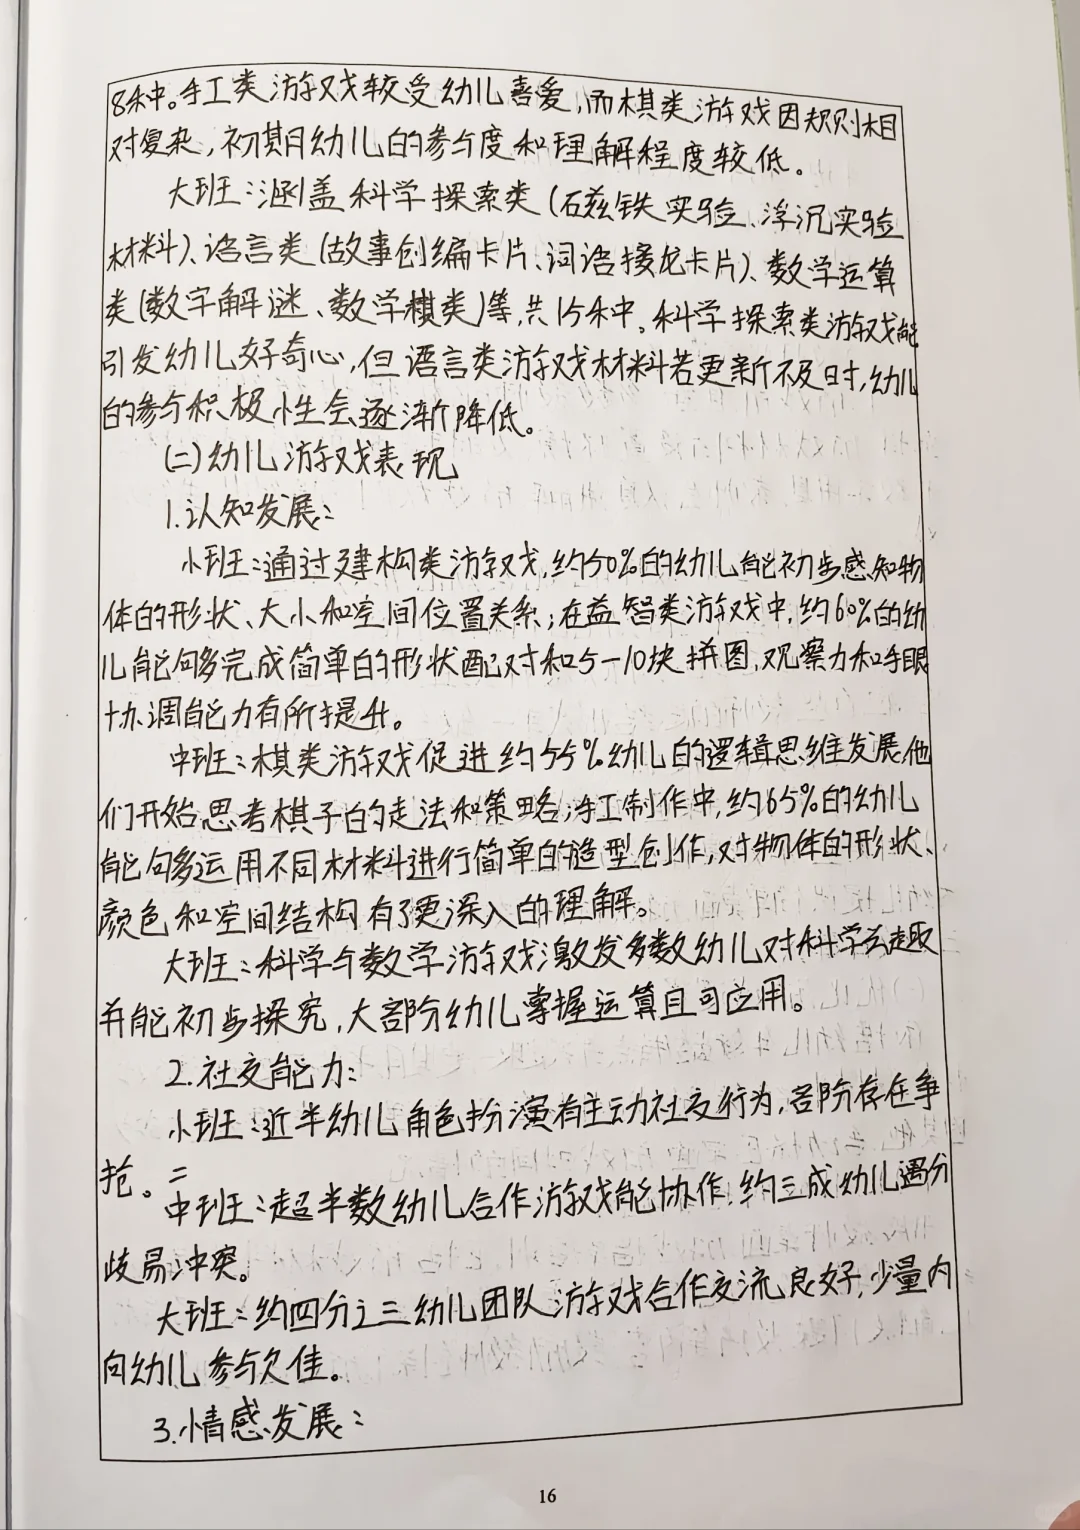 8种。手工类游戏较受幼儿喜爱,而棋类游戏因规则相
对复杂,初期幼儿的参与度和理解程度较低。
大班:涵盖科学探索类(磁铁实验、浮沉实验
材料)、语言类(故事创编卡片、词语接龙卡片)、数学运算
类(数字解谜、数学棋类)等,共15种。科学探索类游戏能
引发幼儿好奇心,但语言类游戏材料若更新不及时,幼儿
的参与积极性会逐渐降低。
(二)幼儿游戏表现
1.认知发展:
小班:通过建构类游戏,约50%的幼儿能初步感知物
体的形状、大小和空间位置关系;在益智类游戏中,约60%的幼
儿能够完成简单的形状配对和5-10块拼图,观察力和手眼
协调能力有所提升。
中班:棋类游戏促进约55%幼儿的逻辑思维发展,他
们开始思考棋子的走法和策略;手工制作中,约65%的幼儿
能够运用不同材料进行简单的造型创作,对物体的形状、
颜色和空间结构有了更深入的理解。
大班:科学与数学游戏激发多数幼儿对科学兴趣
并能初步探究,大部分幼儿掌握运算且可应用。
2.社交能力:
小班:近半幼儿角色扮演有主动社交行为,部分存在争
抢。
中班:超半数幼儿合作游戏能协作,约三成幼儿遇分
歧易冲突。
大班:约四分之三幼儿团队游戏合作交流良好,少量内
向幼儿参与欠佳。
3.情感发展:
16